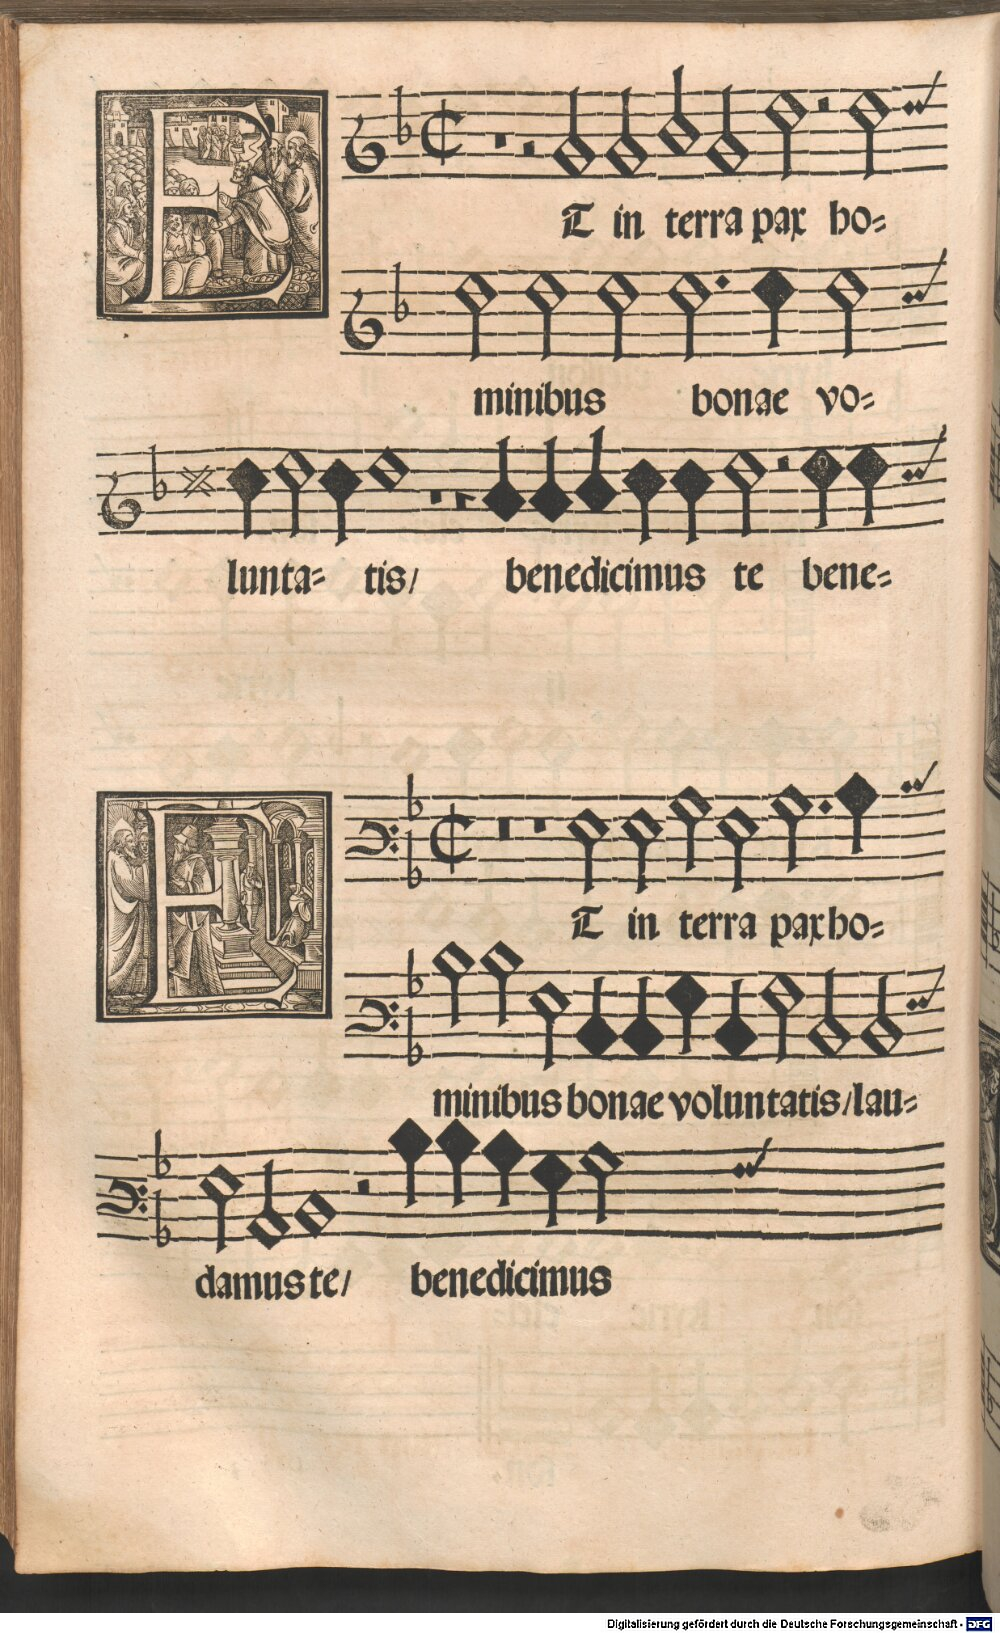 ET in terra pax ho=
minibus bonae vo=
lunta= tis/ benedicimus te bene=
ET in terra pax ho=
minibus bonae voluntatis/ lau=
damus te/ benedicimus
Digitalisierung gefördert durch die Deutsche Forschungsgemeinschaft - DFG